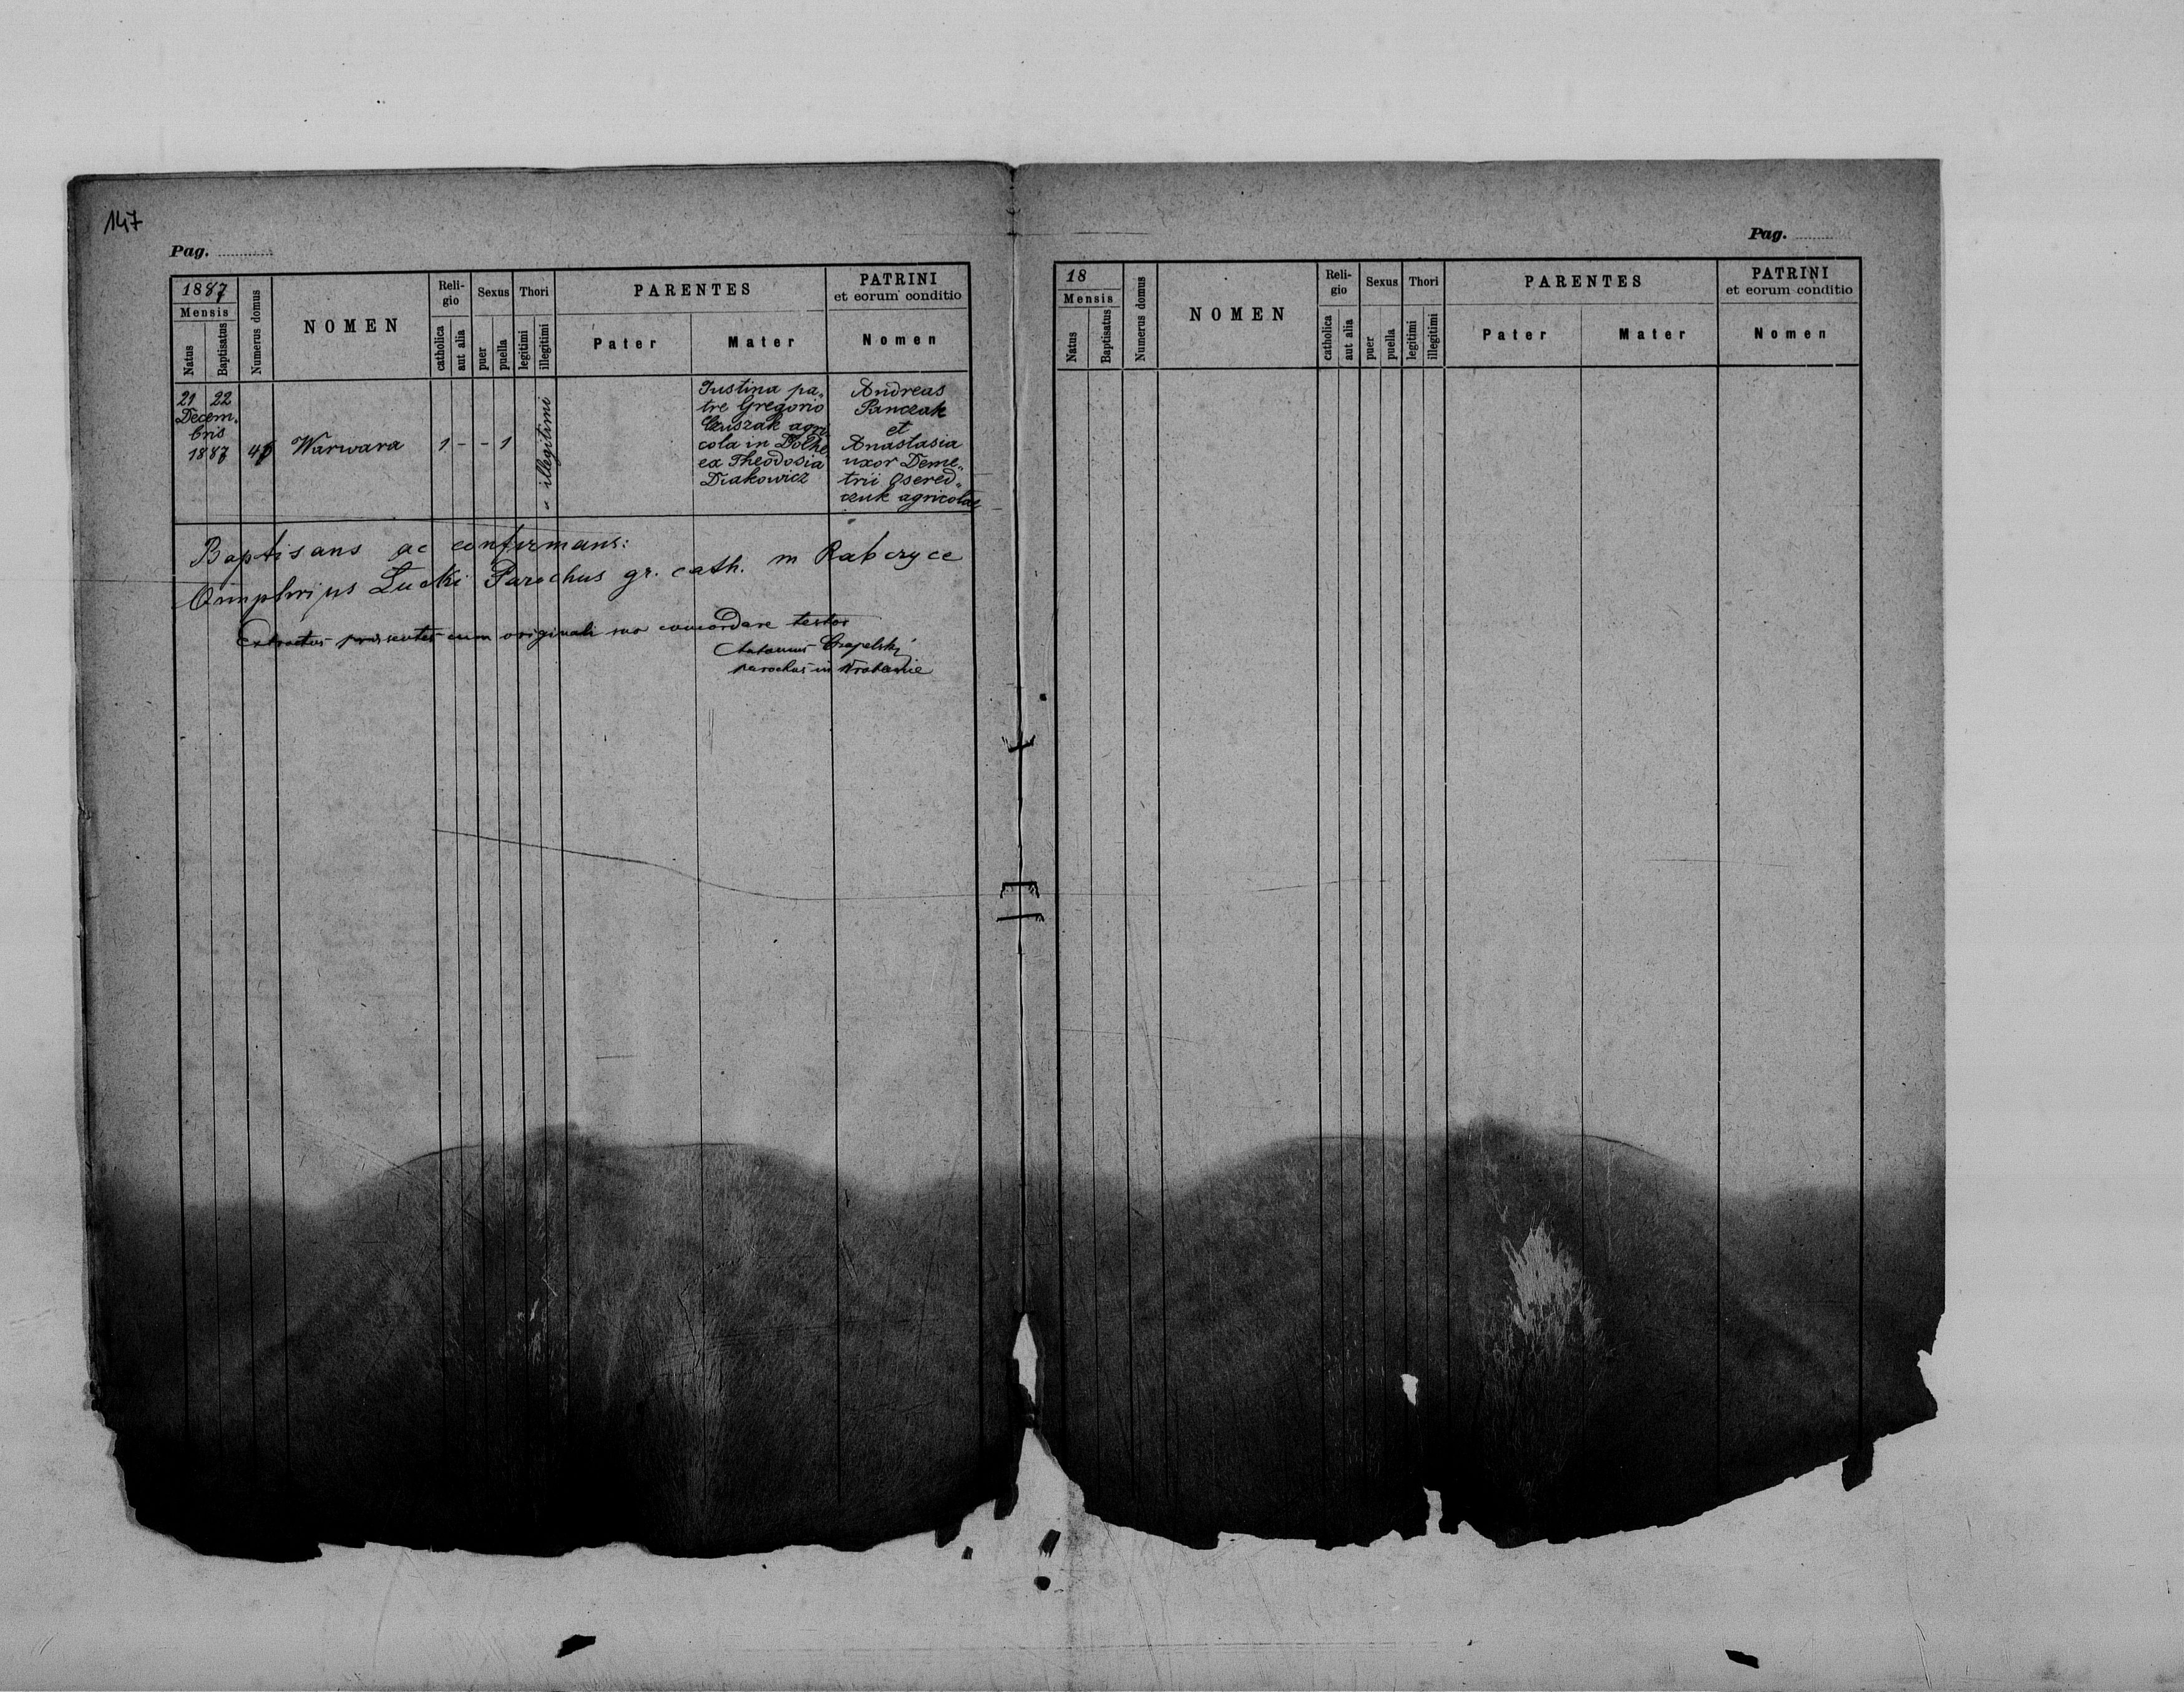 147
Pag.
1887
Mensis
Natus
Baptisatus
Numerus domus
NOMEN
Reli-
gio
catholica
aut alia
Sexus
puer
puella
Thori
legitimi
illegitimi
PARENTES
Pater
Mater
PATRINI
et eorum conditio
Nomen
21 22
Decem.
bris
1887
Warwara
1 - - 1
illegitimi
Iustina pa„
tre Gregorio
agri
cola in
ex Theodosia
Diakowicz
Andreas
Panczak
et
Anastasia
uxor Deme„
trii Osered„
czuk agricolae
Baptisans ac confirmans:
Onuphrijus Lucki Parochus gr. cath. in Rabczyce
Extractus praesentes cum originali suo concordare testor
Antonius Czapelski
parochus in
Pag.
18
Mensis
Natus
Baptisatus
Numerus domus
NOMEN
Reli-
gio
catholica
aut alia
Sexus
puer
puella
Thori
legitimi
illegitimi
PARENTES
Pater
Mater
PATRINI
et eorum conditio
Nomen